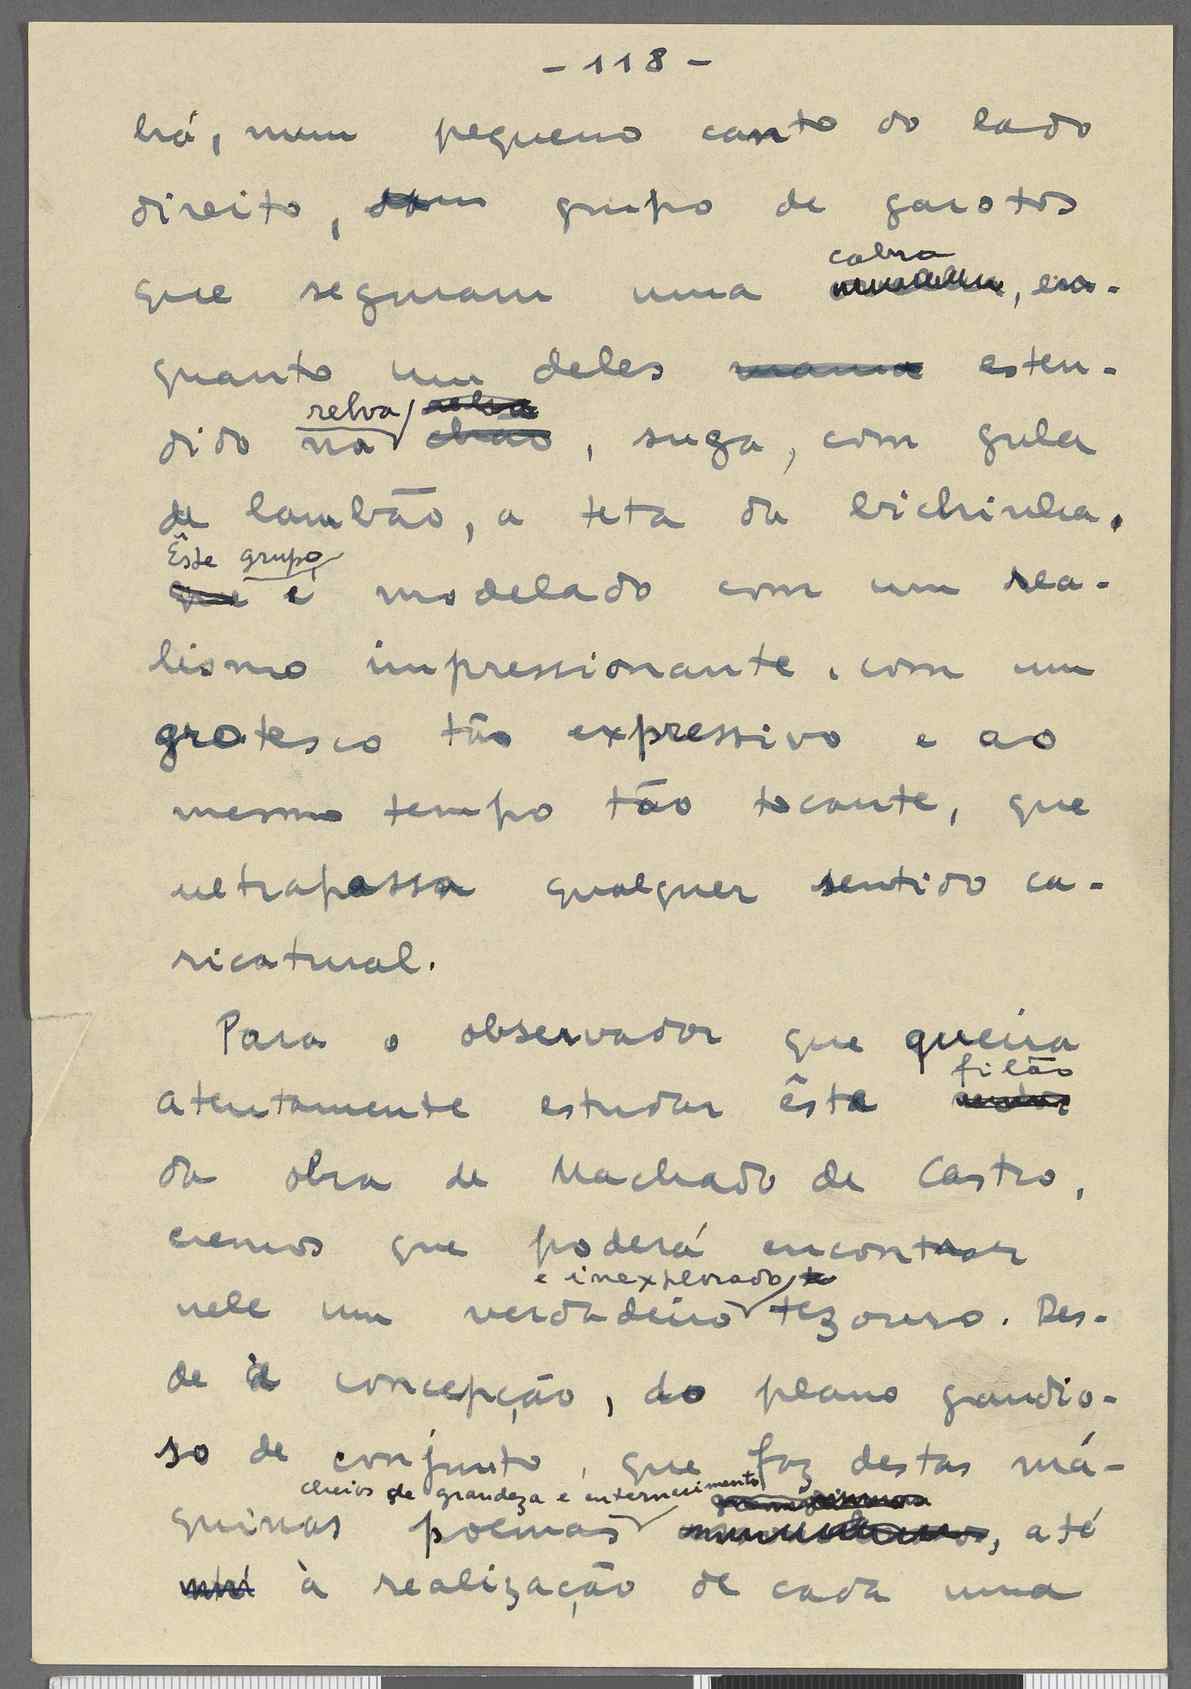 - 118 -
há, num pequeno canto do lado
direito, um grupo de garotos
cabra
que seguram uma , en-
quanto um deles mama esten-
relva relva
dido na chão, suga, com gula
de lambão, a teta da bichinha.
Êste grupo
que é modelado com um rea-
lismo impressionante, com um
grotesco tão expressivo e ao
mesmo tempo tão tocante, que
ultrapassa qualquer sentido ca-
ricatural.
Para o observador que queira
filão
atentamente estudar êste
da obra de Machado de Castro,
cremos que poderá encontrar
e inexplorado te
nele um verdadeiro tezouro. Des-
de a concepção, do plano grandio-
so de conjunto, que faz destas má-
cheios de grandeza e enternecimento
quinas poemas , até
à realização de cada uma